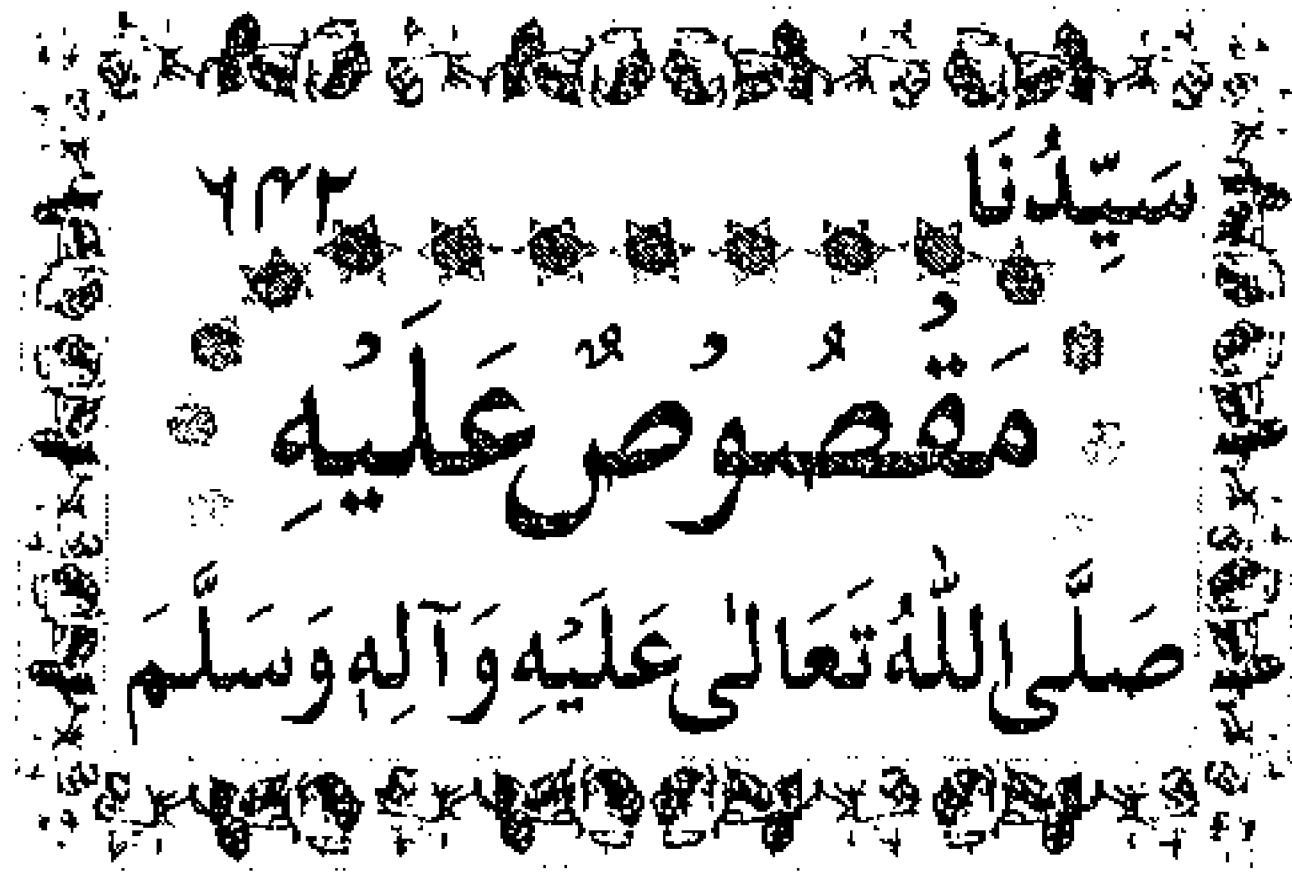 سَيِّدُنَا
مَقْصُوْصٌ عَلَيْهِ
صَلَّى اللّٰهُ تَعَالٰى عَلَيْهِ وَآلِهٖ وَسَلَّمَ